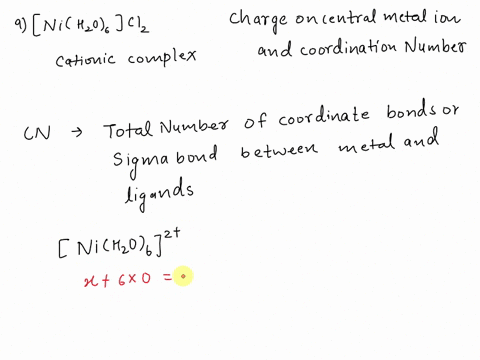 a) [Ni(H₂O)₆]Cl₂
Cationic complex
Charge on central metal ion
and coordination Number
CN → Total Number of coordinate bonds or
Sigma bond between metal and
ligands
[Ni(H₂O)₆]²⁺
x + 6 × 0 =